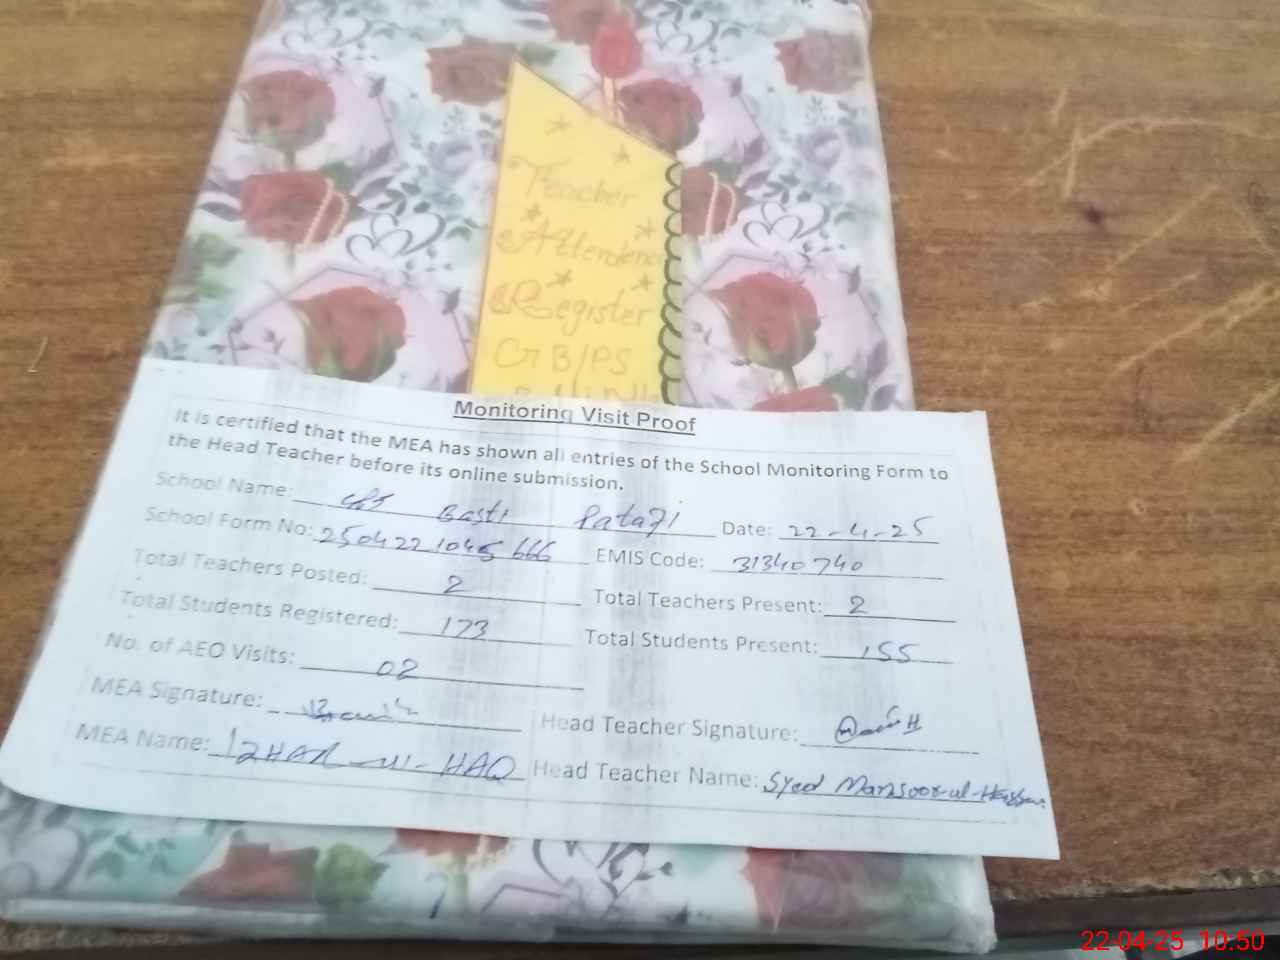 Teacher
Attendenc
Register
GB/PS
Monitoring Visit Proof
It is certified that the MEA has shown all entries of the School Monitoring Form to
the Head Teacher before its online submission.
School Name: Basti Patafi Date: 22-4-25
School Form No: 250422 1045 666 EMIS Code: 31340740
Total Teachers Posted: 2 Total Teachers Present: 2
Total Students Registered: 173 Total Students Present: 155
No. of AEO Visits: 02
MEA Signature: Head Teacher Signature:
MEA Name: IZHAR-ul-HAQ Head Teacher Name: Syed Mansoor-ul-Hassan
22-04-25 10:50